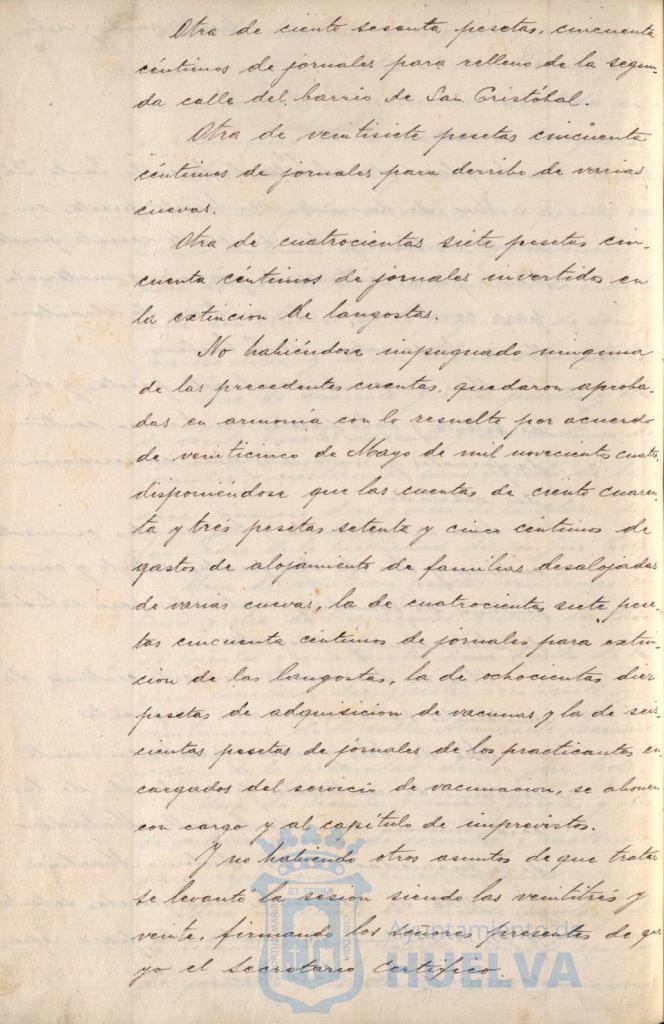 Otra de ciento sesenta pesetas, cincuenta
céntimos de jornales para relleno de la segun-
da calle del barrio de San Cristóbal.
Otra de veintisiete pesetas cincuenta
céntimos de jornales para derribo de varias
cuevas.
Otra de cuatrocientas siete pesetas cin-
cuenta céntimos de jornales invertidos en
la extincion de langostas.
No habiéndose impugnado ninguna
de las precedentes cuentas, quedaron aproba-
das en armonía con lo resuelto por acuerdo
de veinticinco de Mayo de mil novecientos cuatro,
disponiéndose que las cuentas de ciento cuaren-
ta y tres pesetas setenta y cinco céntimos de
gastos de alojamiento de familias desalojadas
de varias cuevas, la de cuatrocientas siete pese-
tas cincuenta céntimos de jornales para extin-
cion de las langostas, la de ochocientas diez
pesetas de adquisicion de vacunas y la de seis-
cientas pesetas de jornales de los practicantes en-
cargados del servicio de vacunacion, se abonen
con cargo y al capítulo de imprevistos.
Y no habiendo otros asuntos de que tratar
se levantó la sesion siendo las veintitrés y
veinte, firmando los señores presentes de que
yo el Secretario certifico.
PORTUS MARIS
ET TERRAE
CUSTODIA
Ayuntamiento de
HUELVA